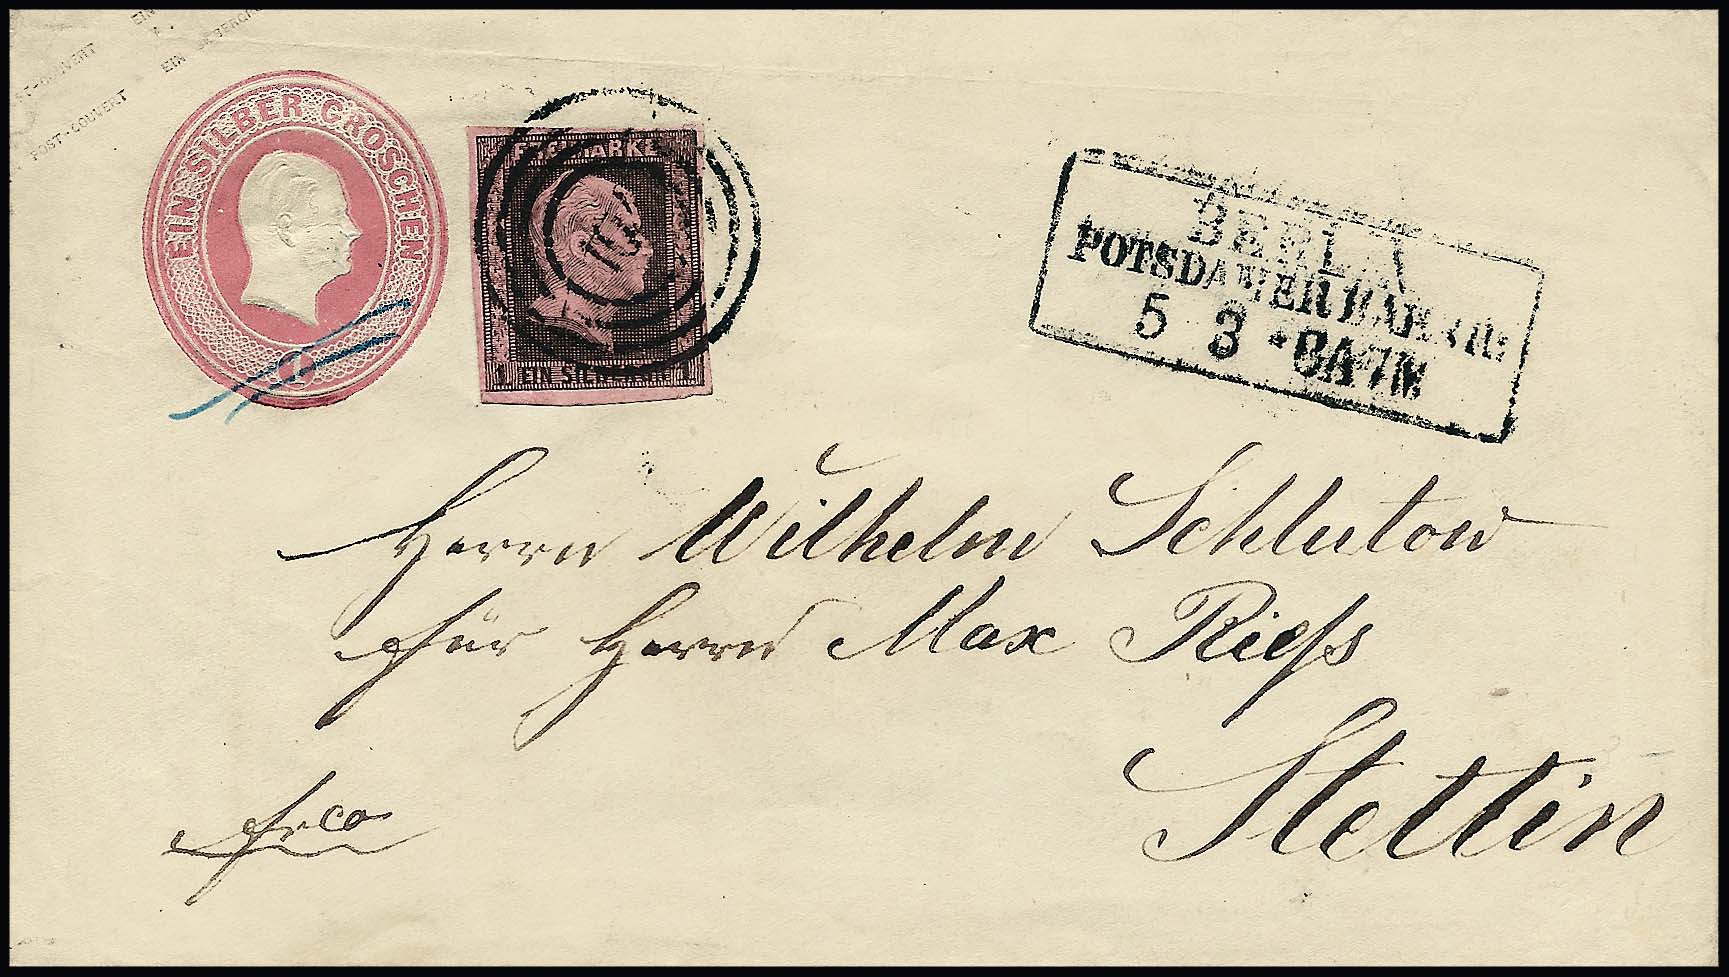 POST-COUVERT EIN SILBERGR
EIN SILBER GROSCHEN
1
FREIMARKE
1 EIN SILBERGR. 1
BERLIN
POTSDAMER BAHNH:
5 3 * 6A7N
Herrn Wilhelm Schlutow
für Herrn Max Riess
Stettin
frco